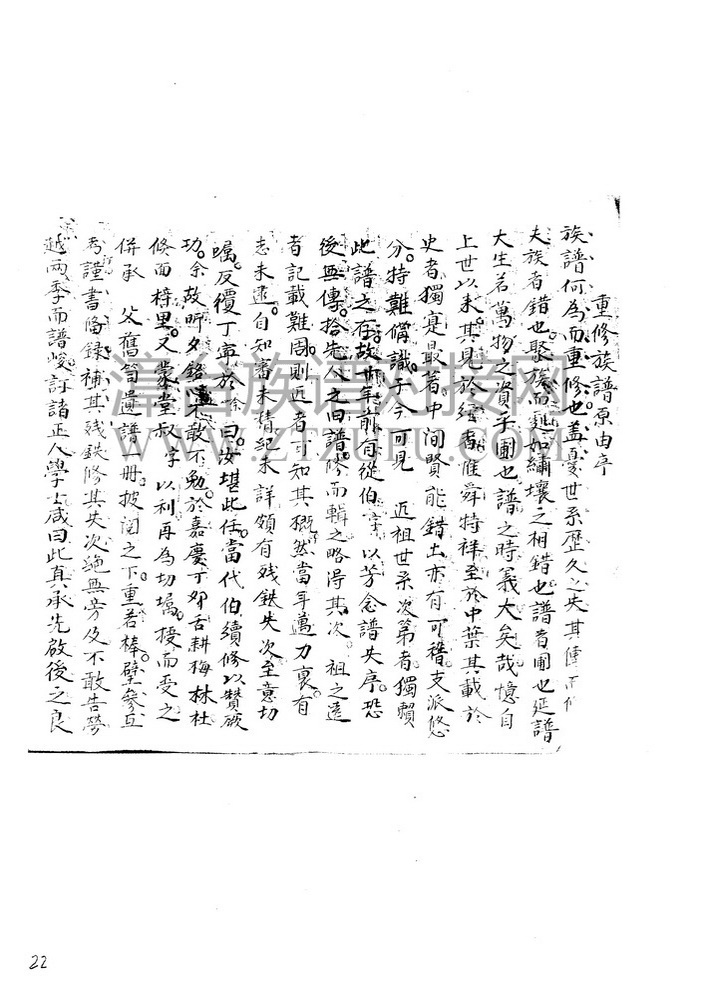 重修族譜原由序
族譜何為而重修也蓋憂世系歷久之失其傳而修
夫族者錯也聚族而亂如繡壤之相錯也譜者圃也延譜
大生名萬物之資乎圃也譜之時義大矣哉憶自
上世以來其見於經書惟舜特祥至於中葉其載於
史者獨寔最著中间賢能錯出亦有可稽支派悠
分特難偹識于今可見 近祖世系次第者獨賴
此譜之存故卅年前旬從伯字以芳念譜失序恐
後無傳拾先人之旧譜修而輯之略得其次 祖之遠
者記載難周則近者可知其概然當年邁力衰有
志未逮自知審未精紀未詳領有残缺失次至意切
囑反覆丁寧於 曰汝堪此任當代伯續修以贊厥
功余故晰夕銘 不敢不勉於嘉慶丁卯舌耕梅林社
倏面梓里又蒙堂叔字以利再為切囑授而受之
併承 父舊笥遺譜一冊披阅之下重若棒璧參互
考謹書俻録補其残缺修其失次絕無旁及不敢告勞
越两季而譜峻訂諸正人學士咸曰此真承先啟後之良
漳台族谱对接网
WWW.ZTZUPU.COM
22